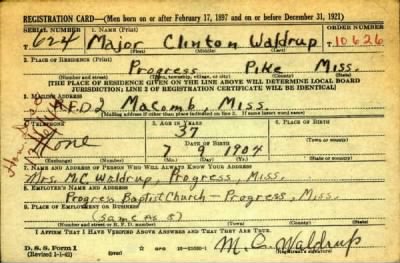 REGISTRATION CARD—(Men born on or after February 17, 1897 and on or before December 31, 1921)
SERIAL NUMBER 1. NAME (Print) ORDER NUMBER
624 Major Clinton Waldrup 10626
(First) (Middle) (Last)
2. PLACE OF RESIDENCE (Print)
Progress Pike Miss.
(Number and street) (Town, township, village, or city) (County) (State)
[THE PLACE OF RESIDENCE GIVEN ON THE LINE ABOVE WILL DETERMINE LOCAL BOARD
JURISDICTION; LINE 2 OF REGISTRATION CERTIFICATE WILL BE IDENTICAL]
3. MAILING ADDRESS
R.F.D 2 Macomb, Miss.
[Mailing address if other than place indicated on line 2. If same insert word same]
4. TELEPHONE 5. AGE IN YEARS 6. PLACE OF BIRTH
37
None DATE OF BIRTH (Town or county)
7 9 1904
(Exchange) (Number) (Mo.) (Day) (Yr.) (State or country)
7. NAME AND ADDRESS OF PERSON WHO WILL ALWAYS KNOW YOUR ADDRESS
Mrs. M.C. Waldrup, Progress, Miss.
8. EMPLOYER'S NAME AND ADDRESS
Progress Baptist Church - Progress, Miss.
9. PLACE OF EMPLOYMENT OR BUSINESS
(same as 8)
(Number and street or R. F. D. number) (Town) (County) (State)
I AFFIRM THAT I HAVE VERIFIED ABOVE ANSWERS AND THAT THEY ARE TRUE.
D. S. S. Form 1
(Revised 1-1-42) GPO M. C. Waldrup